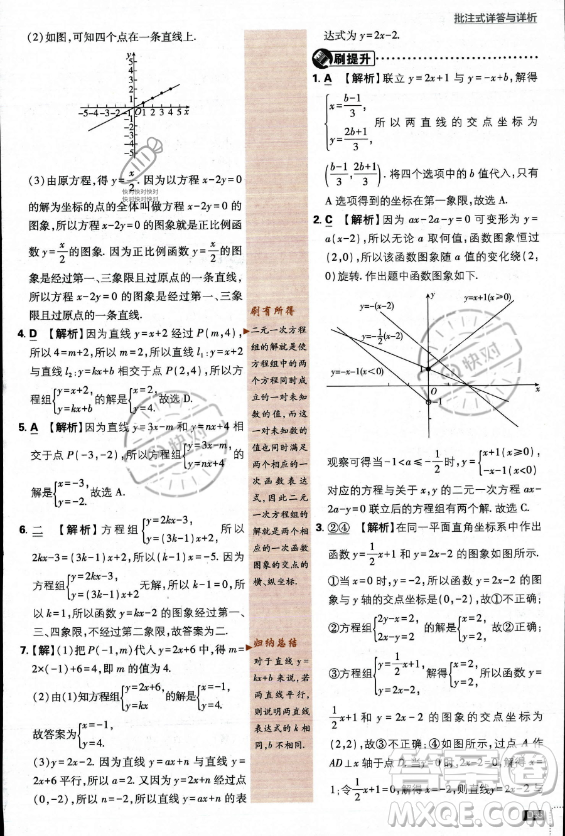 批注式详答与详析
(2)如图,可知四个点在一条直线上.
(3)由原方程,得y=x/2. 因为以方程x-2y=0
的解为坐标的点的全体叫做方程x-2y=0的
图象,所以方程x-2y=0的图象就是正比例函
数y=x/2的图象. 因为正比例函数y=x/2的图
象是经过第一、三象限且过原点的一条直线,
所以方程x-2y=0的图象是经过第一、三象
限且过原点的一条直线.
4. D 【解析】因为直线y=x+2经过P(m,4),
所以4=m+2,所以m=2,所以直线l₁:y=x+2
与直线l₂:y=kx+b相交于点P(2,4),所以
方程组{y=x+2, y=kx+b的解是{x=2, y=4.故选D.
5. A 【解析】因为直线y=3x-m和y=nx+4相
交于点P(-3,-2),所以方程组{y=3x-m, y=nx+4的
解是{x=-3, y=-2.故选A.
6. 二 【解析】方程组{y=2kx-3, y=(3k-1)x+2,所以
2kx-3=(3k-1)x+2,所以(k-1)x=-5. 因为
方程组{y=2kx-3, y=(3k-1)x+2无解,所以k-1=0,所
以k=1,所以函数y=kx-2的图象经过第一、
三、四象限,不经过第二象限,故答案为二.
7. 【解】(1)把P(-1,m)代入y=2x+6中,得m=
2×(-1)+6=4,即m的值为4.
(2)由(1)知方程组{y=2x+6, y=kx的解为{x=-1, y=4.
故答案为{x=-1, y=4.
(3)y=2x-2. 因为直线y=ax+n与直线y=2x
平行,所以a=2. 又因为直线y=ax+n经过点
刷有所得
二元一次方程
组的解就是使
方程组中的两
个方程同时成
立的一对未知
数的值,而这
一对未知数的
值也同时满足
两个相应的一
次函数表达
式,因此二元
一次方程组的
解就是两个相
应的一次函数
图象的交点的
横、纵坐标.
归纳总结
对于直线y=
kx+b,若两直线平行,
则说明两直线
表达式的k相
同,b不同.
达式为y=2x-2.
刷提升
1. A 【解析】联立y=2x+1与y=-x+b,解得
{x=(b-1)/3, y=(2b+1)/3,所以两直线的交点坐标为
((b-1)/3,(2b+1)/3). 将四个选项中的b值代入,只有
A选项得到的坐标在第一象限,故选A.
2. C 【解析】因为ax-2a-y=0可变形为y=
a(x-2),所以无论a取何值,函数图象恒过
(2,0),所以该函数图象随a值的变化绕(2,
0)旋转. 作出题中函数图象如下.
y=-(x-2)
y=x+1(x≥0)
y=-1/2(x-2)
y=-x-1(x<0)
观察可得当-1<a≤-1/2时,{y=x+1(x≥0), y=-x-1(x<0)
对应的方程与关于x,y的二元一次方程ax-
2a-y=0联立后的方程组有两组解. 故选C.
3. ②④ 【解析】在同一平面直角坐标系中作出
函数y=1/2x+1与y=2x-2的图象如图所示.
①当x=0时,y=-2,所以函数y=2x-2的图
象与y轴的交点坐标是(0,-2),故①不正确;
②方程组{2y-x=2, 2x-y=2的解为{x=2, y=2,故②正确;
③方程组{y=1/2x+1, y=2x-2的解为{x=2, y=2,所以函数y=
1/2x+1和y=2x-2的图象交点的坐标为
(2,2),故③不正确;④如图所示,过点A作
AD⊥x轴于点D,令2x-2=0,解得x=
1;令1/2x+1=0,解得x=-2,所以y=2x-2与